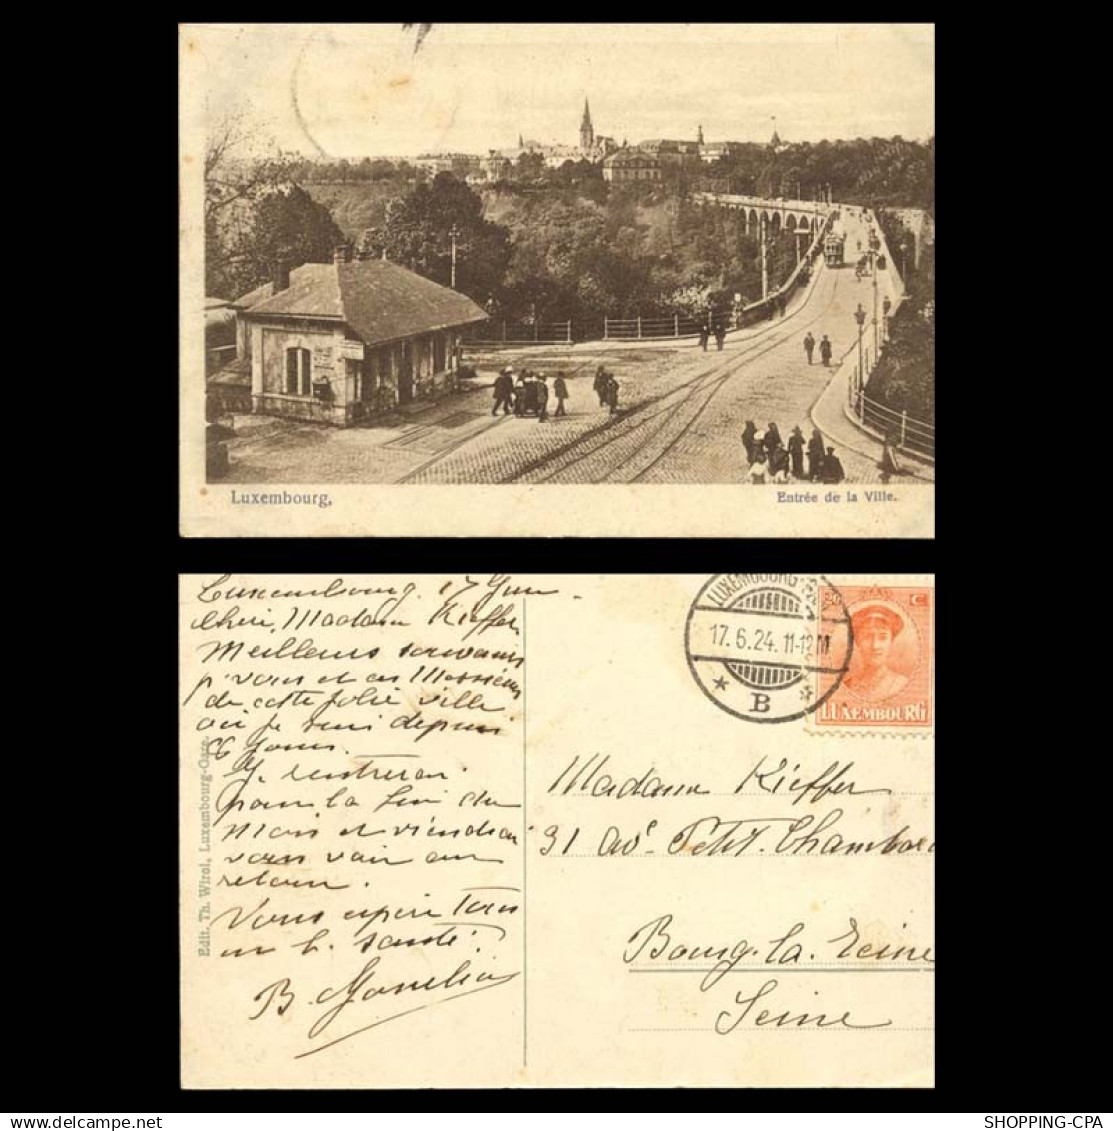 Luxembourg,
Entrée de la Ville.
Luxembourg. 17 Juin
Chère Madame Kieffer
Meilleurs souvenirs
p. vous et ces Messieurs
de cette jolie ville
où je suis depuis
6 jours.
Je rentrerai
pour la fin du
mois et viendrai
vous voir au
retour.
Vous espère tous
en b. santé.
B.
Edit. Th. Wirol, Luxembourg-Gare.
LUXEMBOURG-
17.6.24. 11-12M
* B *
20 C
LUXEMBOURG
Madame Kieffer
31 avᵉ Petit. Chambord
Bourg-la-Reine
Seine
SHOPPING-CPA